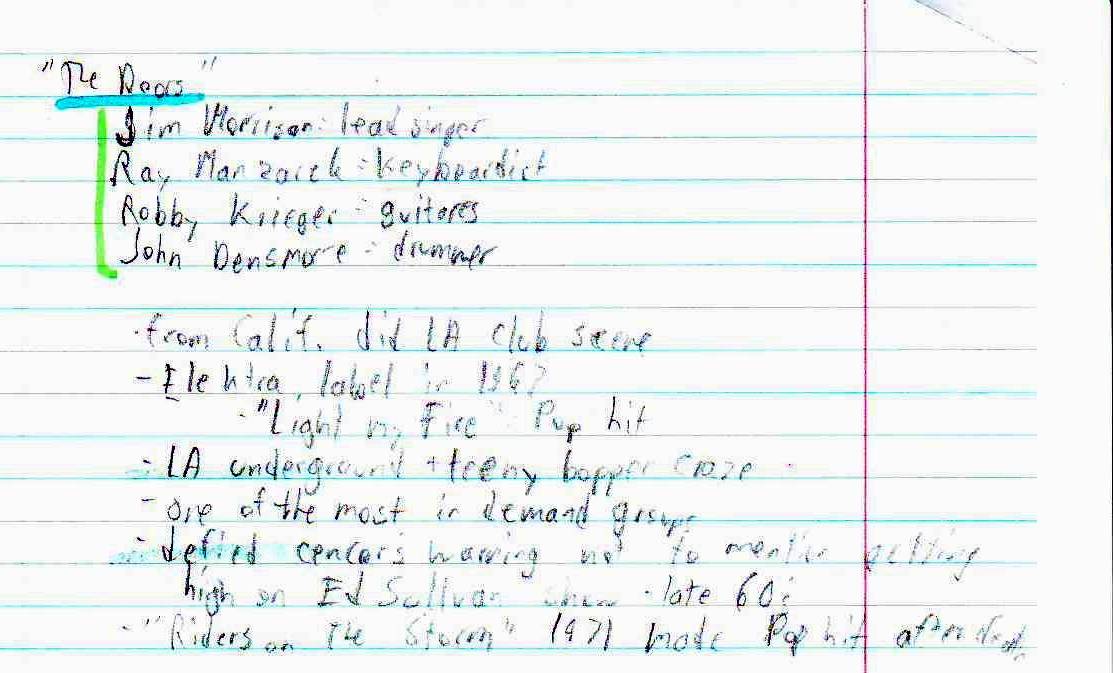 "The Doors"
Jim Morrison - lead singer
Ray Manzarek - keyboardist
Robby Krieger - guitares
John Densmore - drummer
- from Calif. did LA club scene
- Elektra, label in 1967
- "Light my Fire" Pop hit
- LA underground + teeny bopper craze
- one of the most in demand groups
- defied cencor's warning not to mention getting
high on Ed Sullivan show - late 60s
- "Riders on The Storm" 1971 made Pop hit after death